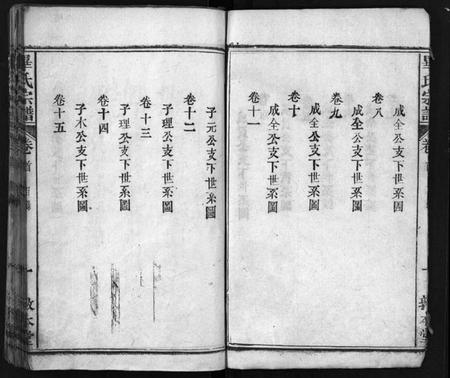 畢氏宗譜
卷首
卷八
成全公支下世系圖
卷九
成全公支下世系圖
卷十
成全公支下世系圖
卷十一
成全公支下世系圖
敦本堂
卷十二
子元公支下世系圖
卷十三
子理公支下世系圖
卷十四
子理公支下世系圖
卷十五
子水公支下世系圖
畢氏宗譜
卷首
一
敦本堂